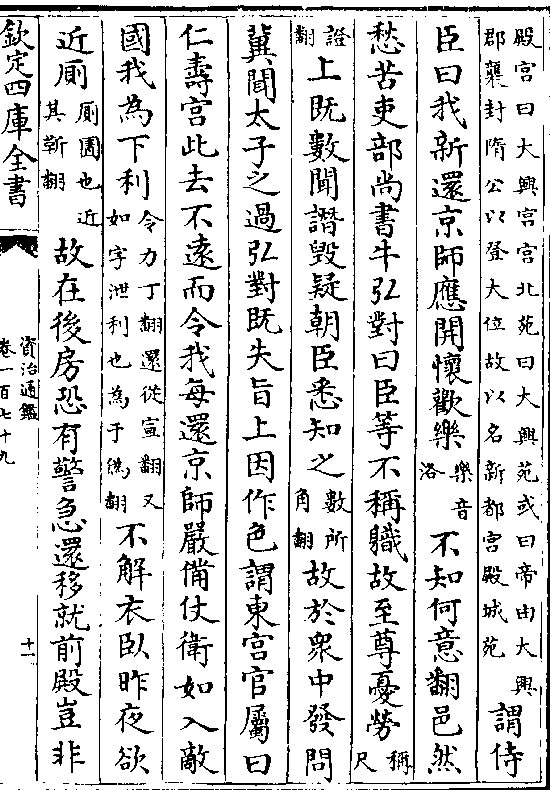 殿宮曰大興宮宮北苑曰大興苑或曰帝由大興郡襄封隋公以登大位故以名新都宮殿城苑謂侍
臣曰我新還京師應開懷歡樂樂音洛不知何意翻邑然
愁苦吏部尚書牛弘對曰臣等不稱職故至尊憂勞稱尺
證翻上既數聞譖毀疑朝臣悉知之數所角翻故於衆中發問
冀聞太子之過弘對既失旨上因作色謂東宮官屬曰
仁壽宮此去不遠而令我每還京師嚴備仗衛如入敵
國我為下利令力丁翻還從宣翻又如字泄利也為于偽翻不解衣臥昨夜欲
近厠厠圊也近其靳翻故在後房恐有警急還移就前殿豈非
欽定四庫全書
資治通鑑
卷一百七十九
十一